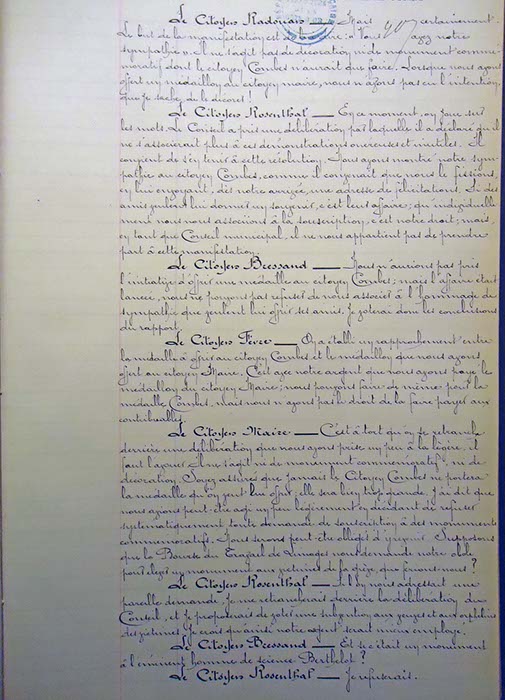 Le Citoyen Nadonais — Mais certainement.
Le but de la manifestation est de lui dire : « Vous avez notre
sympathie ». Il ne s'agit pas de décoration, ni de monument commé-
moratif dont le citoyen Combes n'aurait que faire. Lorsque nous avons
offert un médaillon au citoyen maire, nous n'avons pas eu l'intention,
que je sache, de le décorer !
Le Citoyen Rosenthal — En ce moment, on joue sur
les mots. Le Conseil a pris une délibération par laquelle il a déclaré qu'il
ne s'associerait plus à ces démonstrations onéreuses et inutiles. Il
convient de s'en tenir à cette résolution. Nous avons montré notre sym-
pathie au citoyen Combes, comme il convenait que nous le fissions,
en lui envoyant, dès notre arrivée, une adresse de félicitations. Si des
amis veulent lui donner un souvenir, c'est leur affaire ; qu'individuelle-
ment nous nous associions à la souscription, c'est notre droit, mais,
en tant que Conseil municipal, il ne nous appartient pas de prendre
part à cette manifestation.
Le Citoyen Bressand — Nous n'aurions pas pris
l'initiative d'offrir une médaille au citoyen Combes ; mais l'affaire étant
lancée, nous ne pouvons pas refuser de nous associer à l'hommage de
sympathie que veulent lui offrir ses amis. Je voterai donc les conclusions
du rapport.
Le Citoyen Fèvre — On a établi un rapprochement entre
la médaille à offrir au citoyen Combes et le médaillon que nous avons
offert au citoyen Maire. C'est avec notre argent que nous avons payé le
médaillon du citoyen Maire ; nous pouvons faire de même pour la
médaille Combes, mais nous n'avons pas le droit de la faire payer aux
contribuables.
Le Citoyen Maire — C'est à tort qu'on se retranche
derrière une délibération que nous avons prise un peu à la légère, il
faut l'avouer. Il ne s'agit ni de monument commémoratif, ni de
décoration. Soyez assurés que jamais le Citoyen Combes ne portera
la médaille qu'on veut lui offrir, elle sera bien trop grande. J'ai dit que
nous avions peut-être agi un peu légèrement en décidant de refuser
systématiquement toute demande de souscription à des monuments
commémoratifs. Nous serons peut-être obligés d'y revenir. Supposons
que la Bourse du Travail de Limoges nous demande notre obole
pour élever un monument aux victimes de la grève, que ferons-nous ?
Le Citoyen Rosenthal — Si l'on nous adressait une
pareille demande, je me retrancherais derrière la délibération du
Conseil, et je proposerais de voter une subvention aux veuves et aux orphelins
des victimes. Je crois qu'ainsi notre argent serait mieux employé.
Le Citoyen Bressand — Et si c'était un monument
à l'éminent homme de science Berthelot ?
Le Citoyen Rosenthal — Je refuserais.